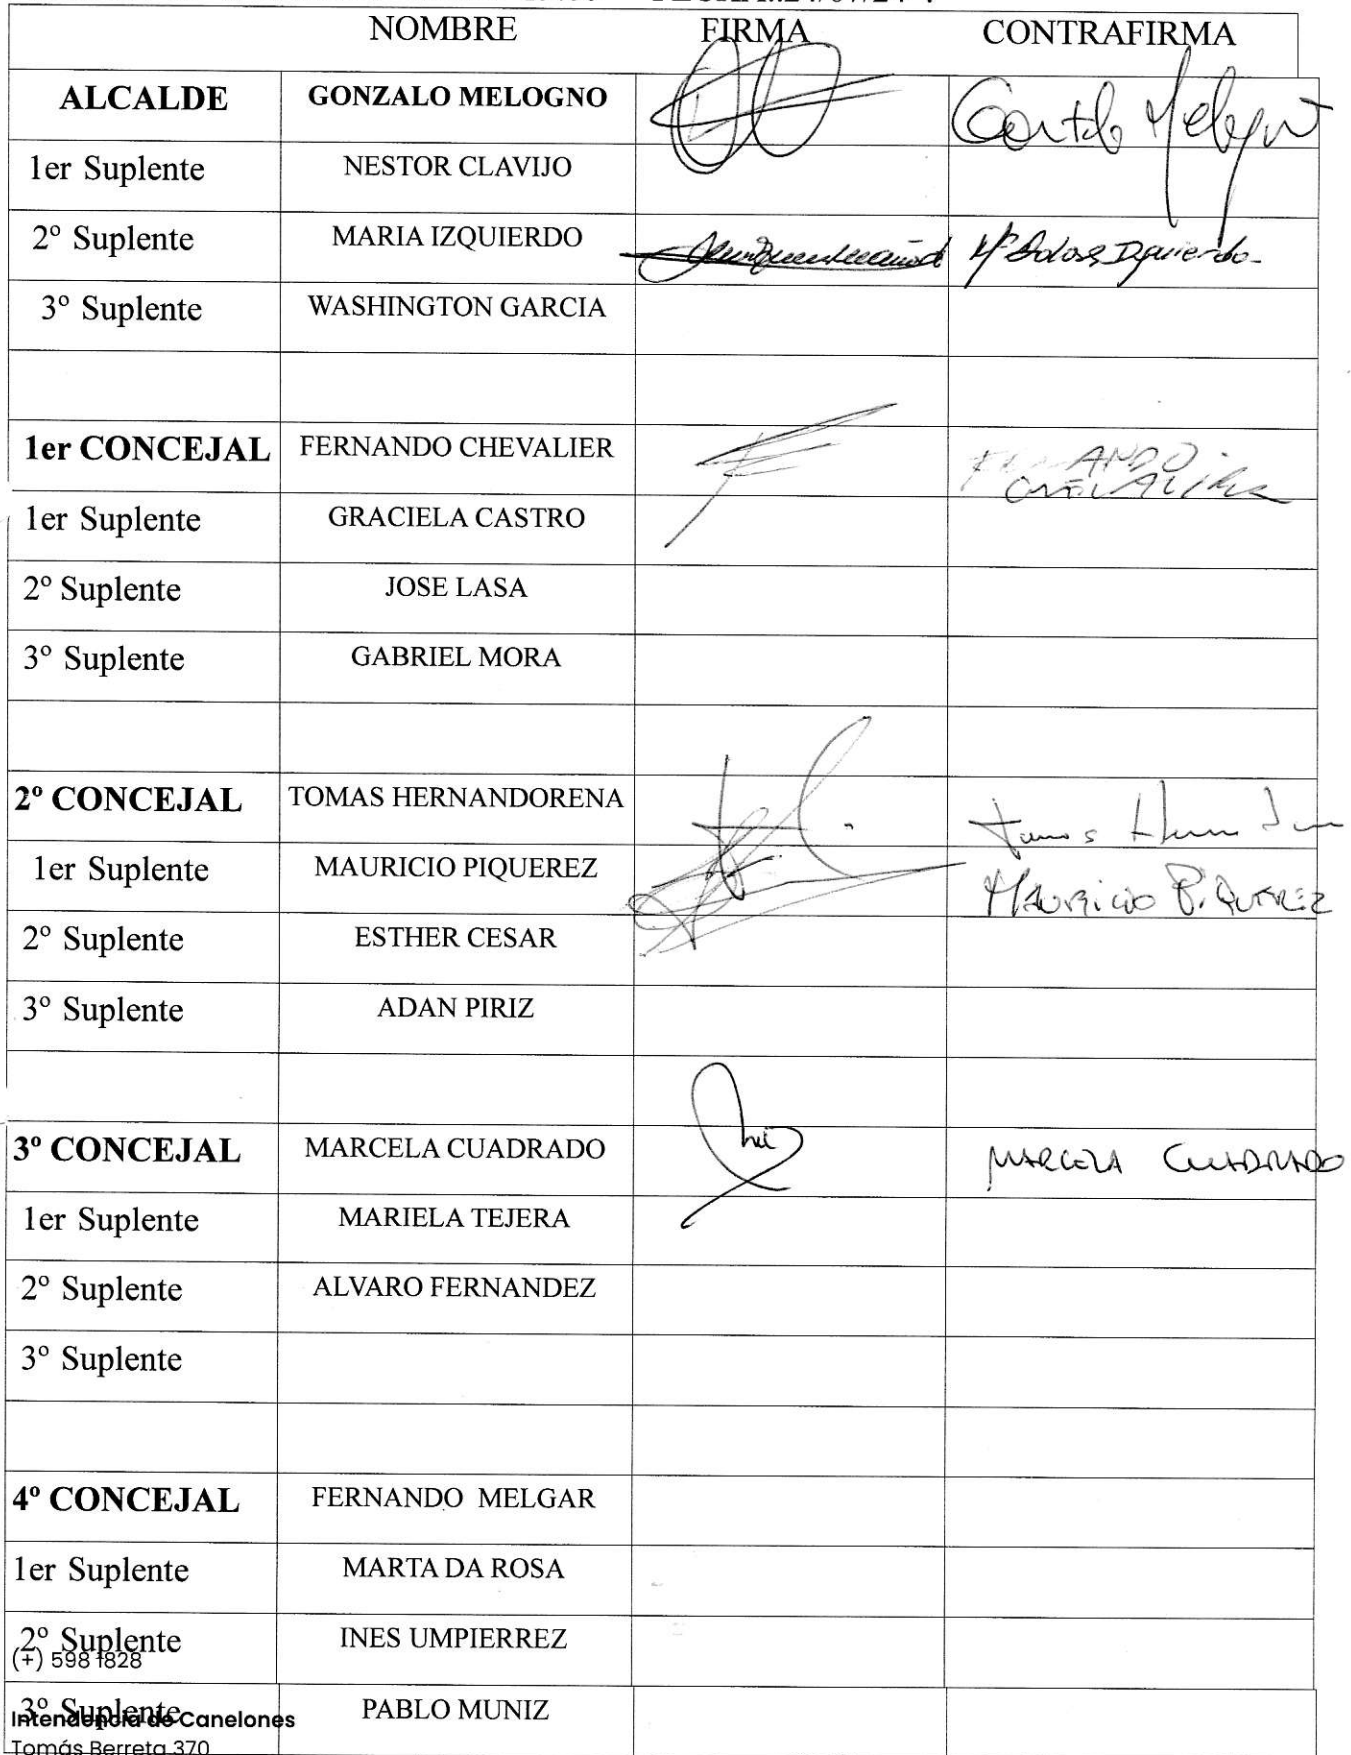 NOMBRE FIRMA CONTRAFIRMA
ALCALDE GONZALO MELOGNO
1er Suplente NESTOR CLAVIJO
2º Suplente MARIA IZQUIERDO Izquierdo
3º Suplente WASHINGTON GARCIA
1er CONCEJAL FERNANDO CHEVALIER
1er Suplente GRACIELA CASTRO
2º Suplente JOSE LASA
3º Suplente GABRIEL MORA
2º CONCEJAL TOMAS HERNANDORENA Tomas
1er Suplente MAURICIO PIQUEREZ MAURICIO PIQUEREZ
2º Suplente ESTHER CESAR
3º Suplente ADAN PIRIZ
3º CONCEJAL MARCELA CUADRADO MARCELA CUADRADO
1er Suplente MARIELA TEJERA
2º Suplente ALVARO FERNANDEZ
3º Suplente
4º CONCEJAL FERNANDO MELGAR
1er Suplente MARTA DA ROSA
2º Suplente INES UMPIERREZ
(+) 598 1828
3º Suplente PABLO MUNIZ
Intendencia de Canelones
Tomás Berreta 370